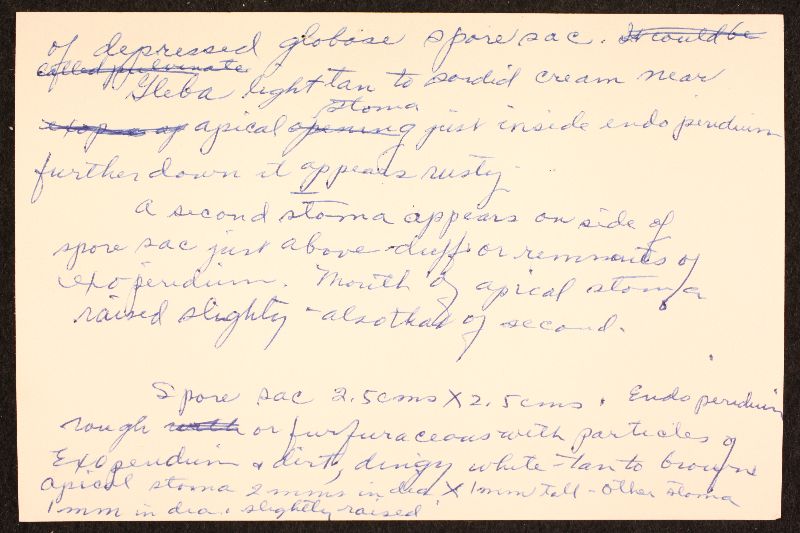 of depressed globose spore sac. It could be
called pulvinate
Gleba light tan to sordid cream near
stoma
apical opening just inside endoperidium
further down it appears rusty.
A second stoma appears on side of
spore sac just above duff or remnants of
exoperidium. Mouth of apical stoma
raised slighty - also that of second.
Spore sac 2.5cms X 2.5cms. Endoperidium
rough with or furfuraceous with particles of
Exoperidium & dirt, dingy white-tan to browne
apical stoma 2mms in dia X 1mm tall - other stoma
1mm in dia. slightly raised